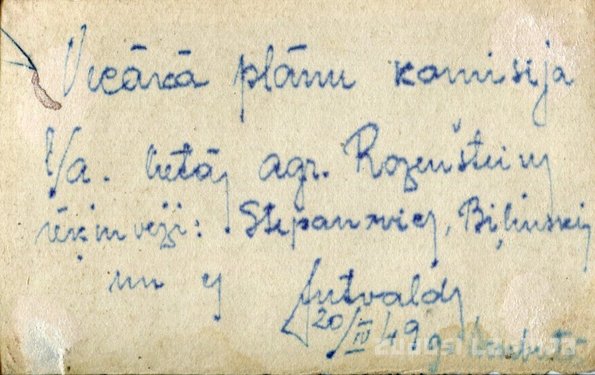 Vecākā plānu komisija
l/a. lietās agr. Rozenšteins
rēķinveži: Stepanovics, Biļinskis
un
Gutvalds
20/IV 49 g.